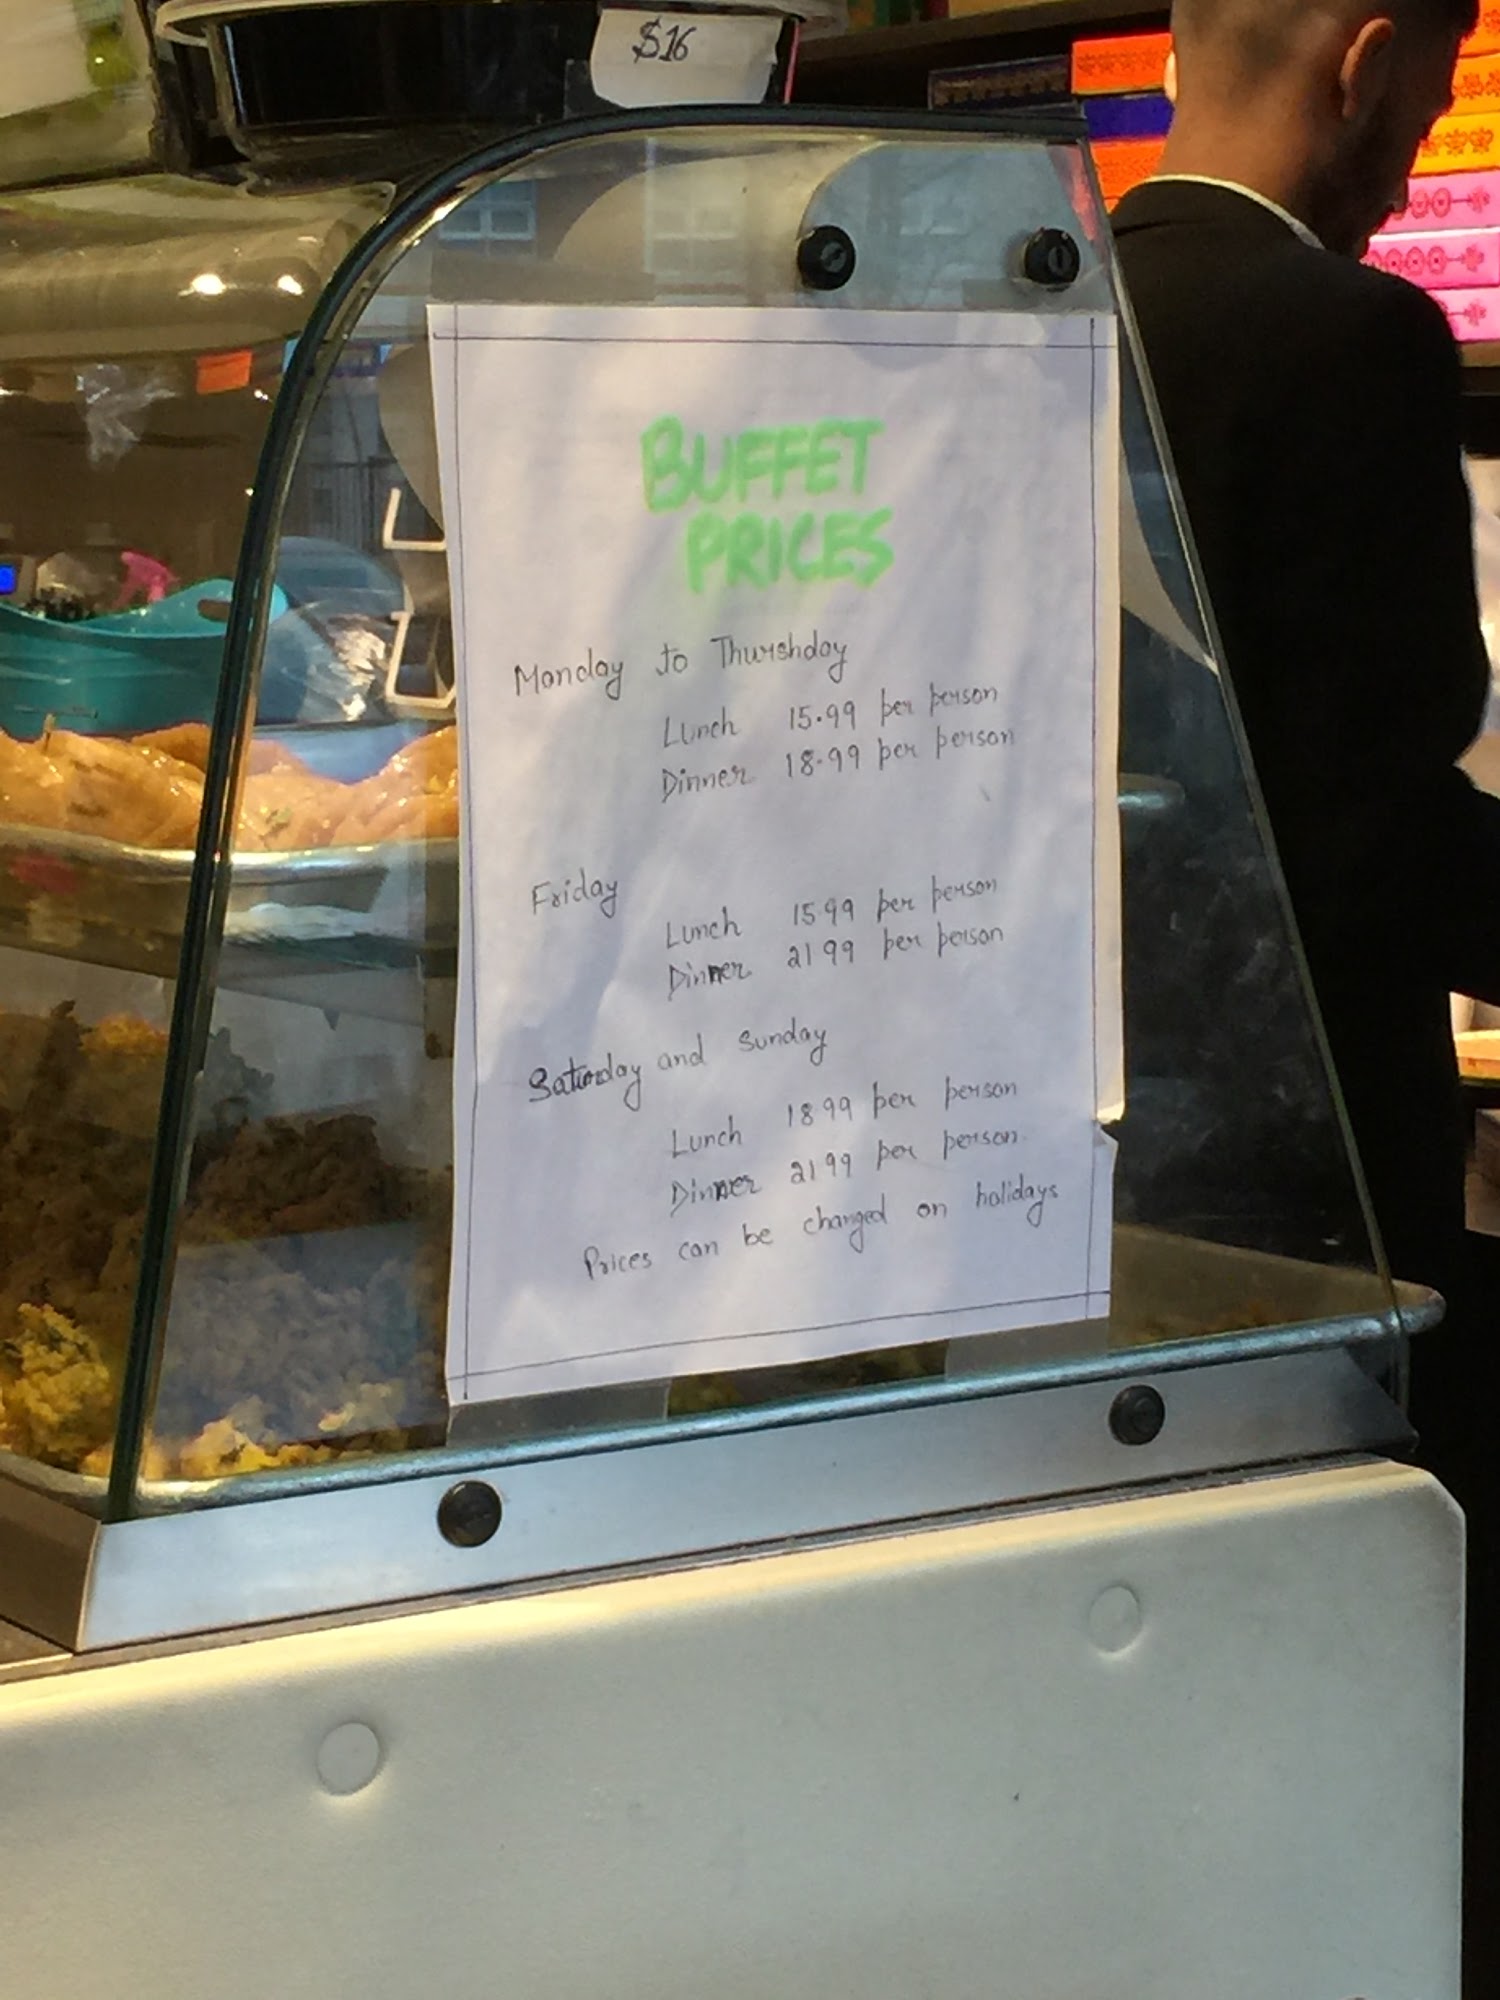 $16
BUFFET
PRICES
Monday to Thurshday
Lunch 15.99 per person
Dinner 18.99 per person
Friday
Lunch 15.99 per person
Dinner 21 99 per person
Saturday and Sunday
Lunch 18 99 per person
Dinner 21 99 per person
Prices can be changed on holidays